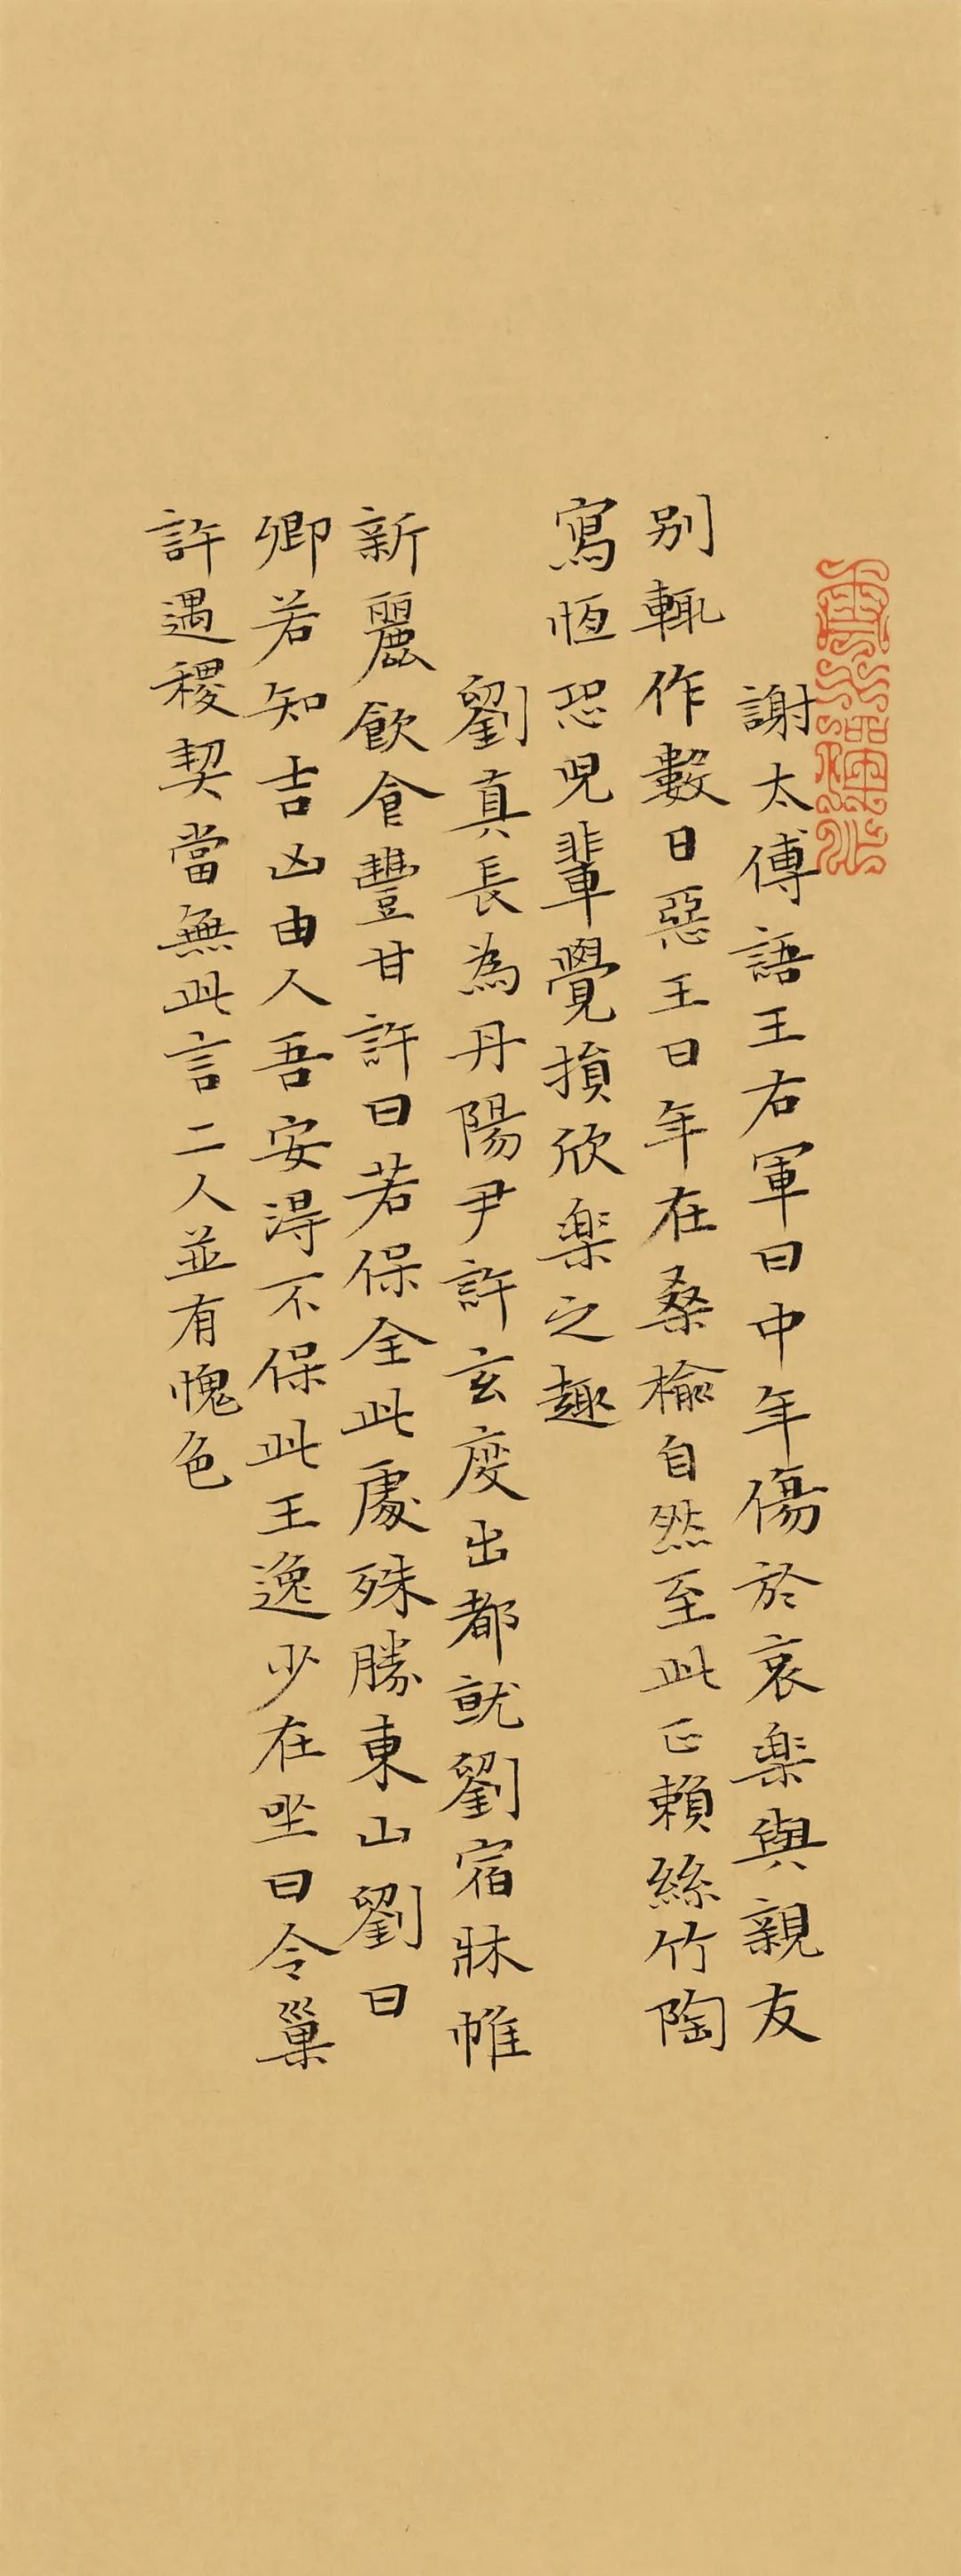 謝太傅語王右軍曰中年傷於哀樂與親友
别輒作數日惡王曰年在桑榆自然至此正賴絲竹陶
寫恆恐兒輩覺損欣樂之趣
劉真長為丹陽尹許玄度出都就劉宿牀帷
新麗飲食豐甘許曰若保全此處殊勝東山劉曰
卿若知吉凶由人吾安得不保此王逸少在坐曰令巢
許遇稷契當無此言二人並有愧色